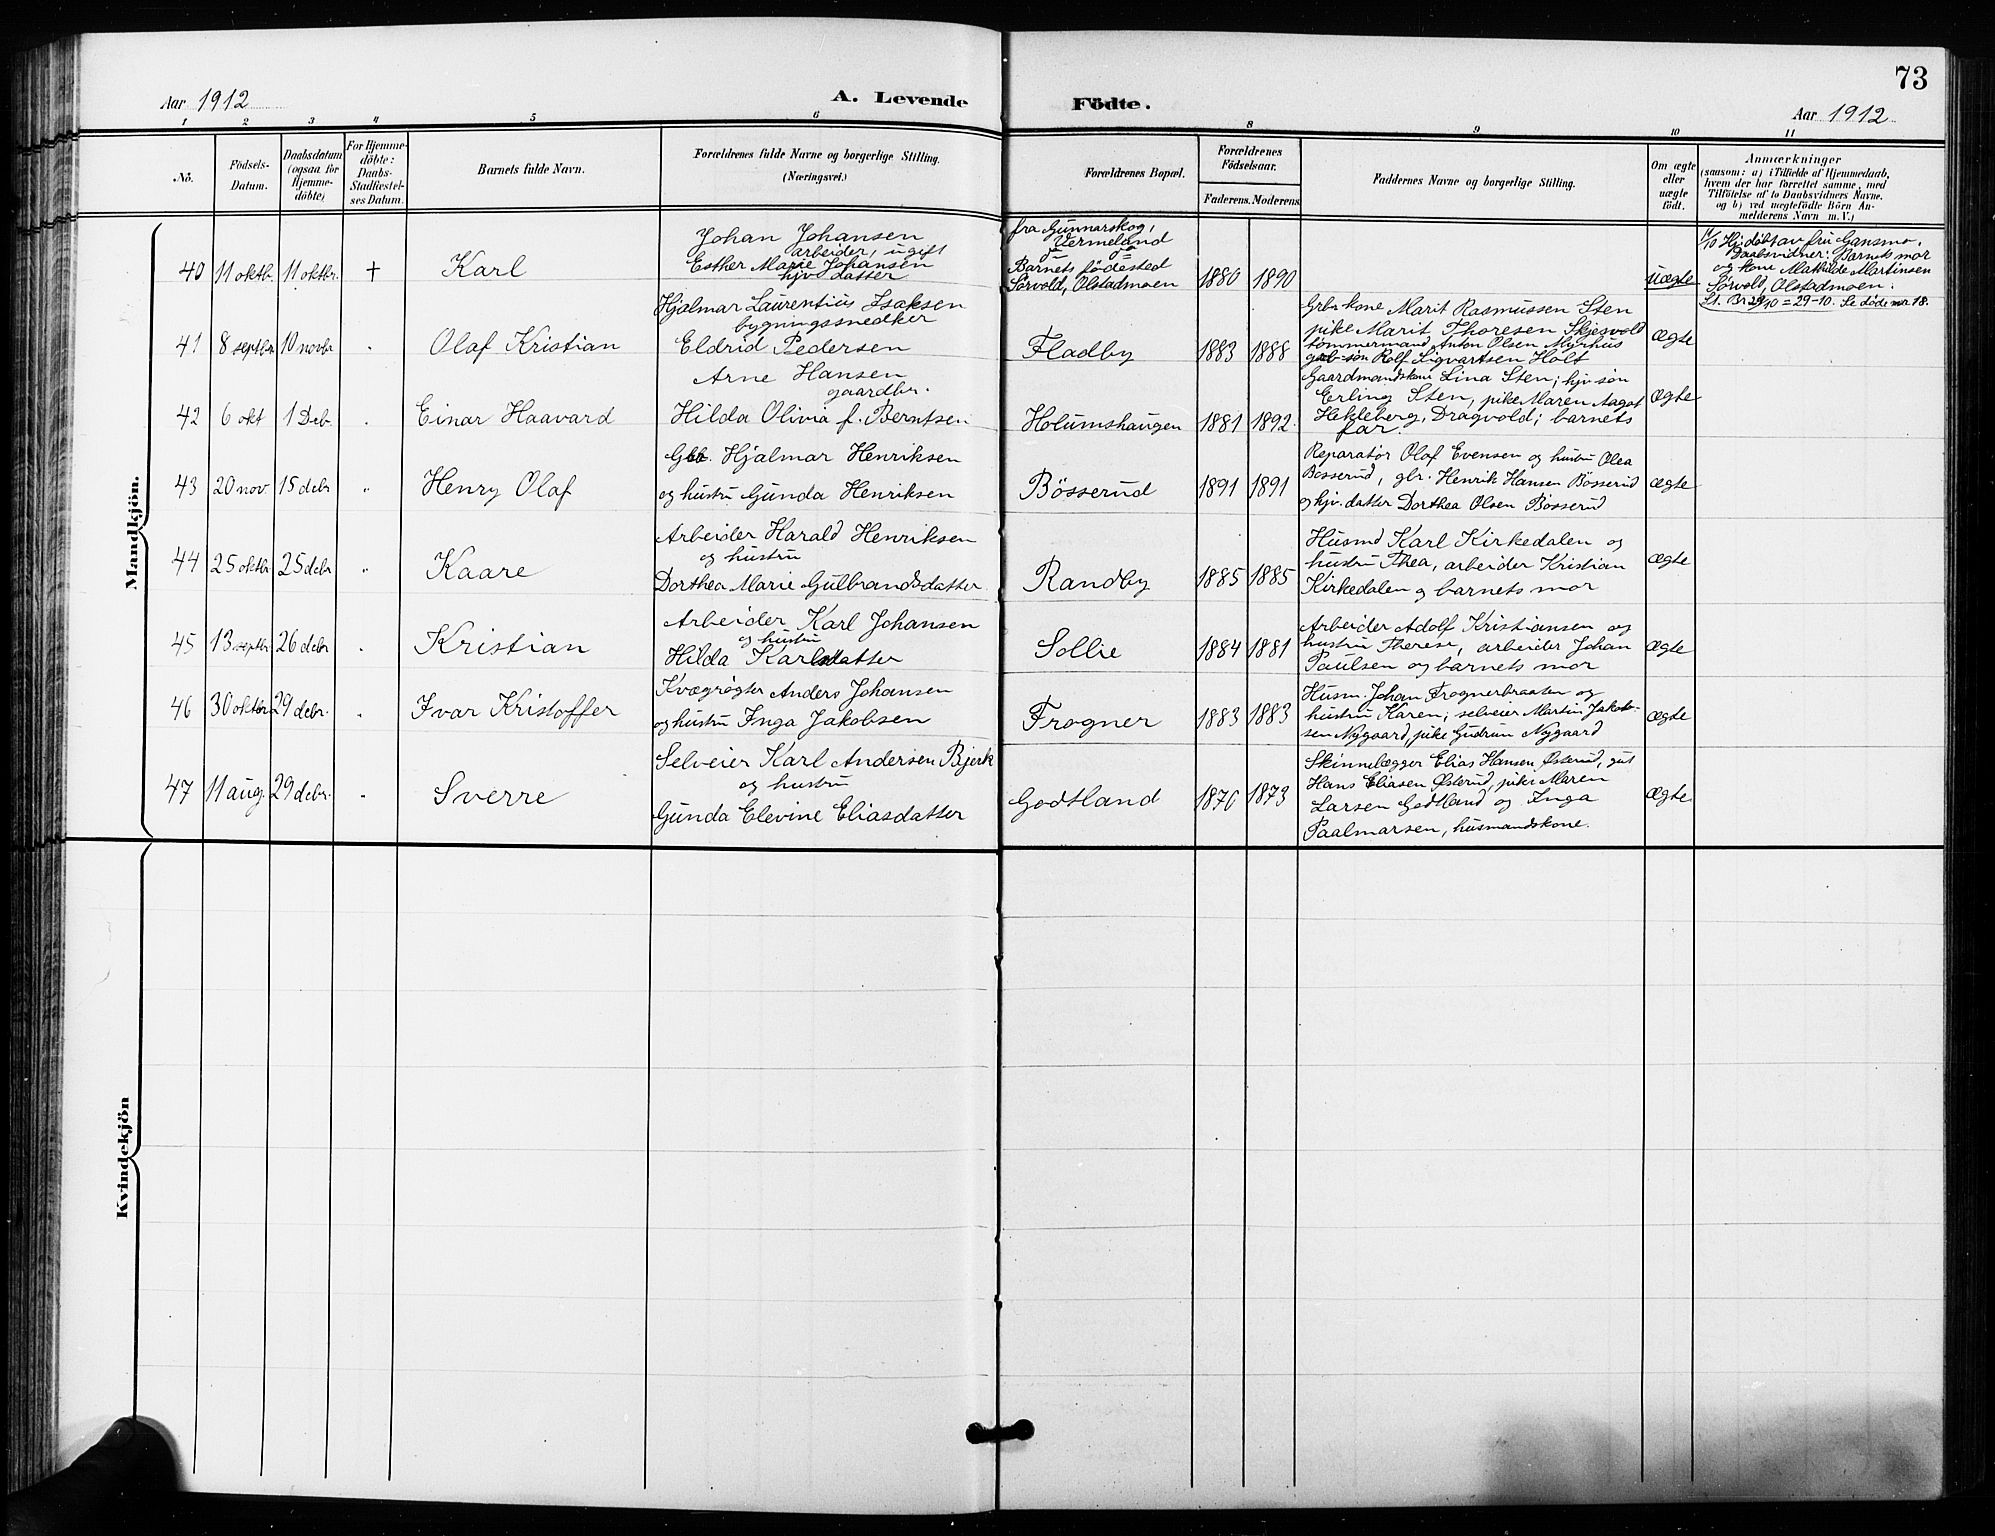 73
Aar 1912
A. Levende
Födte.
Aar 1912
1 2 3 4 5 6 8 9 10 11
No.
Födsels-
Datum.
Daabsdatum
(ogsaa for
Hjemme-
döbte)
For Hjemme-
döbte:
Daabs-
Stadfæstel-
ses Datum.
Barnets fulde Navn.
Forældrenes fulde Navne og borgerlige Stilling.
(Næringsvei.)
Forældrenes Bopæl.
Forældrenes
Födselsaar.
Faderens. Moderens.
Faddernes Navne og borgerlige Stilling.
Om ægte
eller
uægte
födt.
Anmærkninger
(saasom: a) i Tilfælde af Hjemmedaab,
hvem der har forrettet samme, med
Tilföielse af to Daabsvidners Navne.
og b) ved uægtefödte Börn An-
melderens Navn m. V.)
Mandkjön.
40 11 oktb. 11 oktbr. † Karl
Johan Johansen
arbeider, ugift
Esther Marie Johansen
hjv datter
fra Gunnarskog,
Vermeland
Barnets fødested
Sørvold, Olstadmoen
1880 1890
uægte
11/10 Hj.døbt av fru Gansmo.
Daabsvidner: Barnets mor
og kone Mathilde Martinsen
Sørvold, Olstadmoen.
St. Br 29/10 = 29-10. Se døde nr 18.
41 8 septbr 10 novbr " Olaf Kristian
Hjalmar Laurentius Isaksen
bygningssnedker
Eldrid Pedersen
Fladby
1883 1888
Grbr kone Marit Rasmussen Sten
pike Marit Thoresen Skjesvold
tømmermand Anton Olsen Mørhus
grb søn Rolf Sigvartsen Holt
Ægte
42 6 okt 1 Deb. " Einar Haavard
Arne Hansen
gaardbr.
Hilda Olivia f. Berntsen
Holumshaugen
1881 1892.
Gaardmandskone Lina Sten; hjv søn
Erling Sten, pike Maren Aagot
Hekleberg, Dragvold; barnets
far.
Ægte
43 20 nov. 15 debr " Henry Olaf
Gbb. Hjalmar Henriksen
og hustru Gunda Henriksen
Bösserud
1891 1891
Reparatør Olaf Evensen og hustru Olea
Bösserud, gbr. Henrik Hansen Bösserud
og hjv. datter Dorthea Olsen Bösserud
ægte
44 25 oktbr 25 debr " Kaare
Arbeider Harald Henriksen
og hustru
Dorthea Marie Gulbrandsdatter
Randby
1885 1885
Husmd Karl Kirkedalen og
hustru Thea, arbeider Kristian
Kirkedalen og barnets mor
ægte
45 13 septbr 26 debr " Kristian
Arbeider Karl Johansen
og hustru
Hilda Karlsdatter
Sollie
1884 1881
Arbeider Adolf Kristiansen og
hustru Therese, arbeider Johan
Paulsen og barnets mor
ægte
46 30 oktbr 29 debr. " Ivar Kristoffer
Kvægrøgter Anders Johansen
og hustru Inga Jakobsen
Frogner
1883 1883
Husm. Johan Frognerbraaten og
hustru Karen; selveier Martin Jakob-
sen Nygaard, pike Gudrun Nygaard
ægte
47 11 aug. 29 debr. " Sverre
Selveier Karl Andersen Bjerk
og hustru
Gunda Elevine Eliasdatter
Godtland
1870 1873
Skinnelægger Elias Hansen Østerud, gut
Hans Eliasen Østerud, pike Maren
Larsen Godtland og Inga
Paalmarsen, husmandskone.
ægte
Kvindekjön